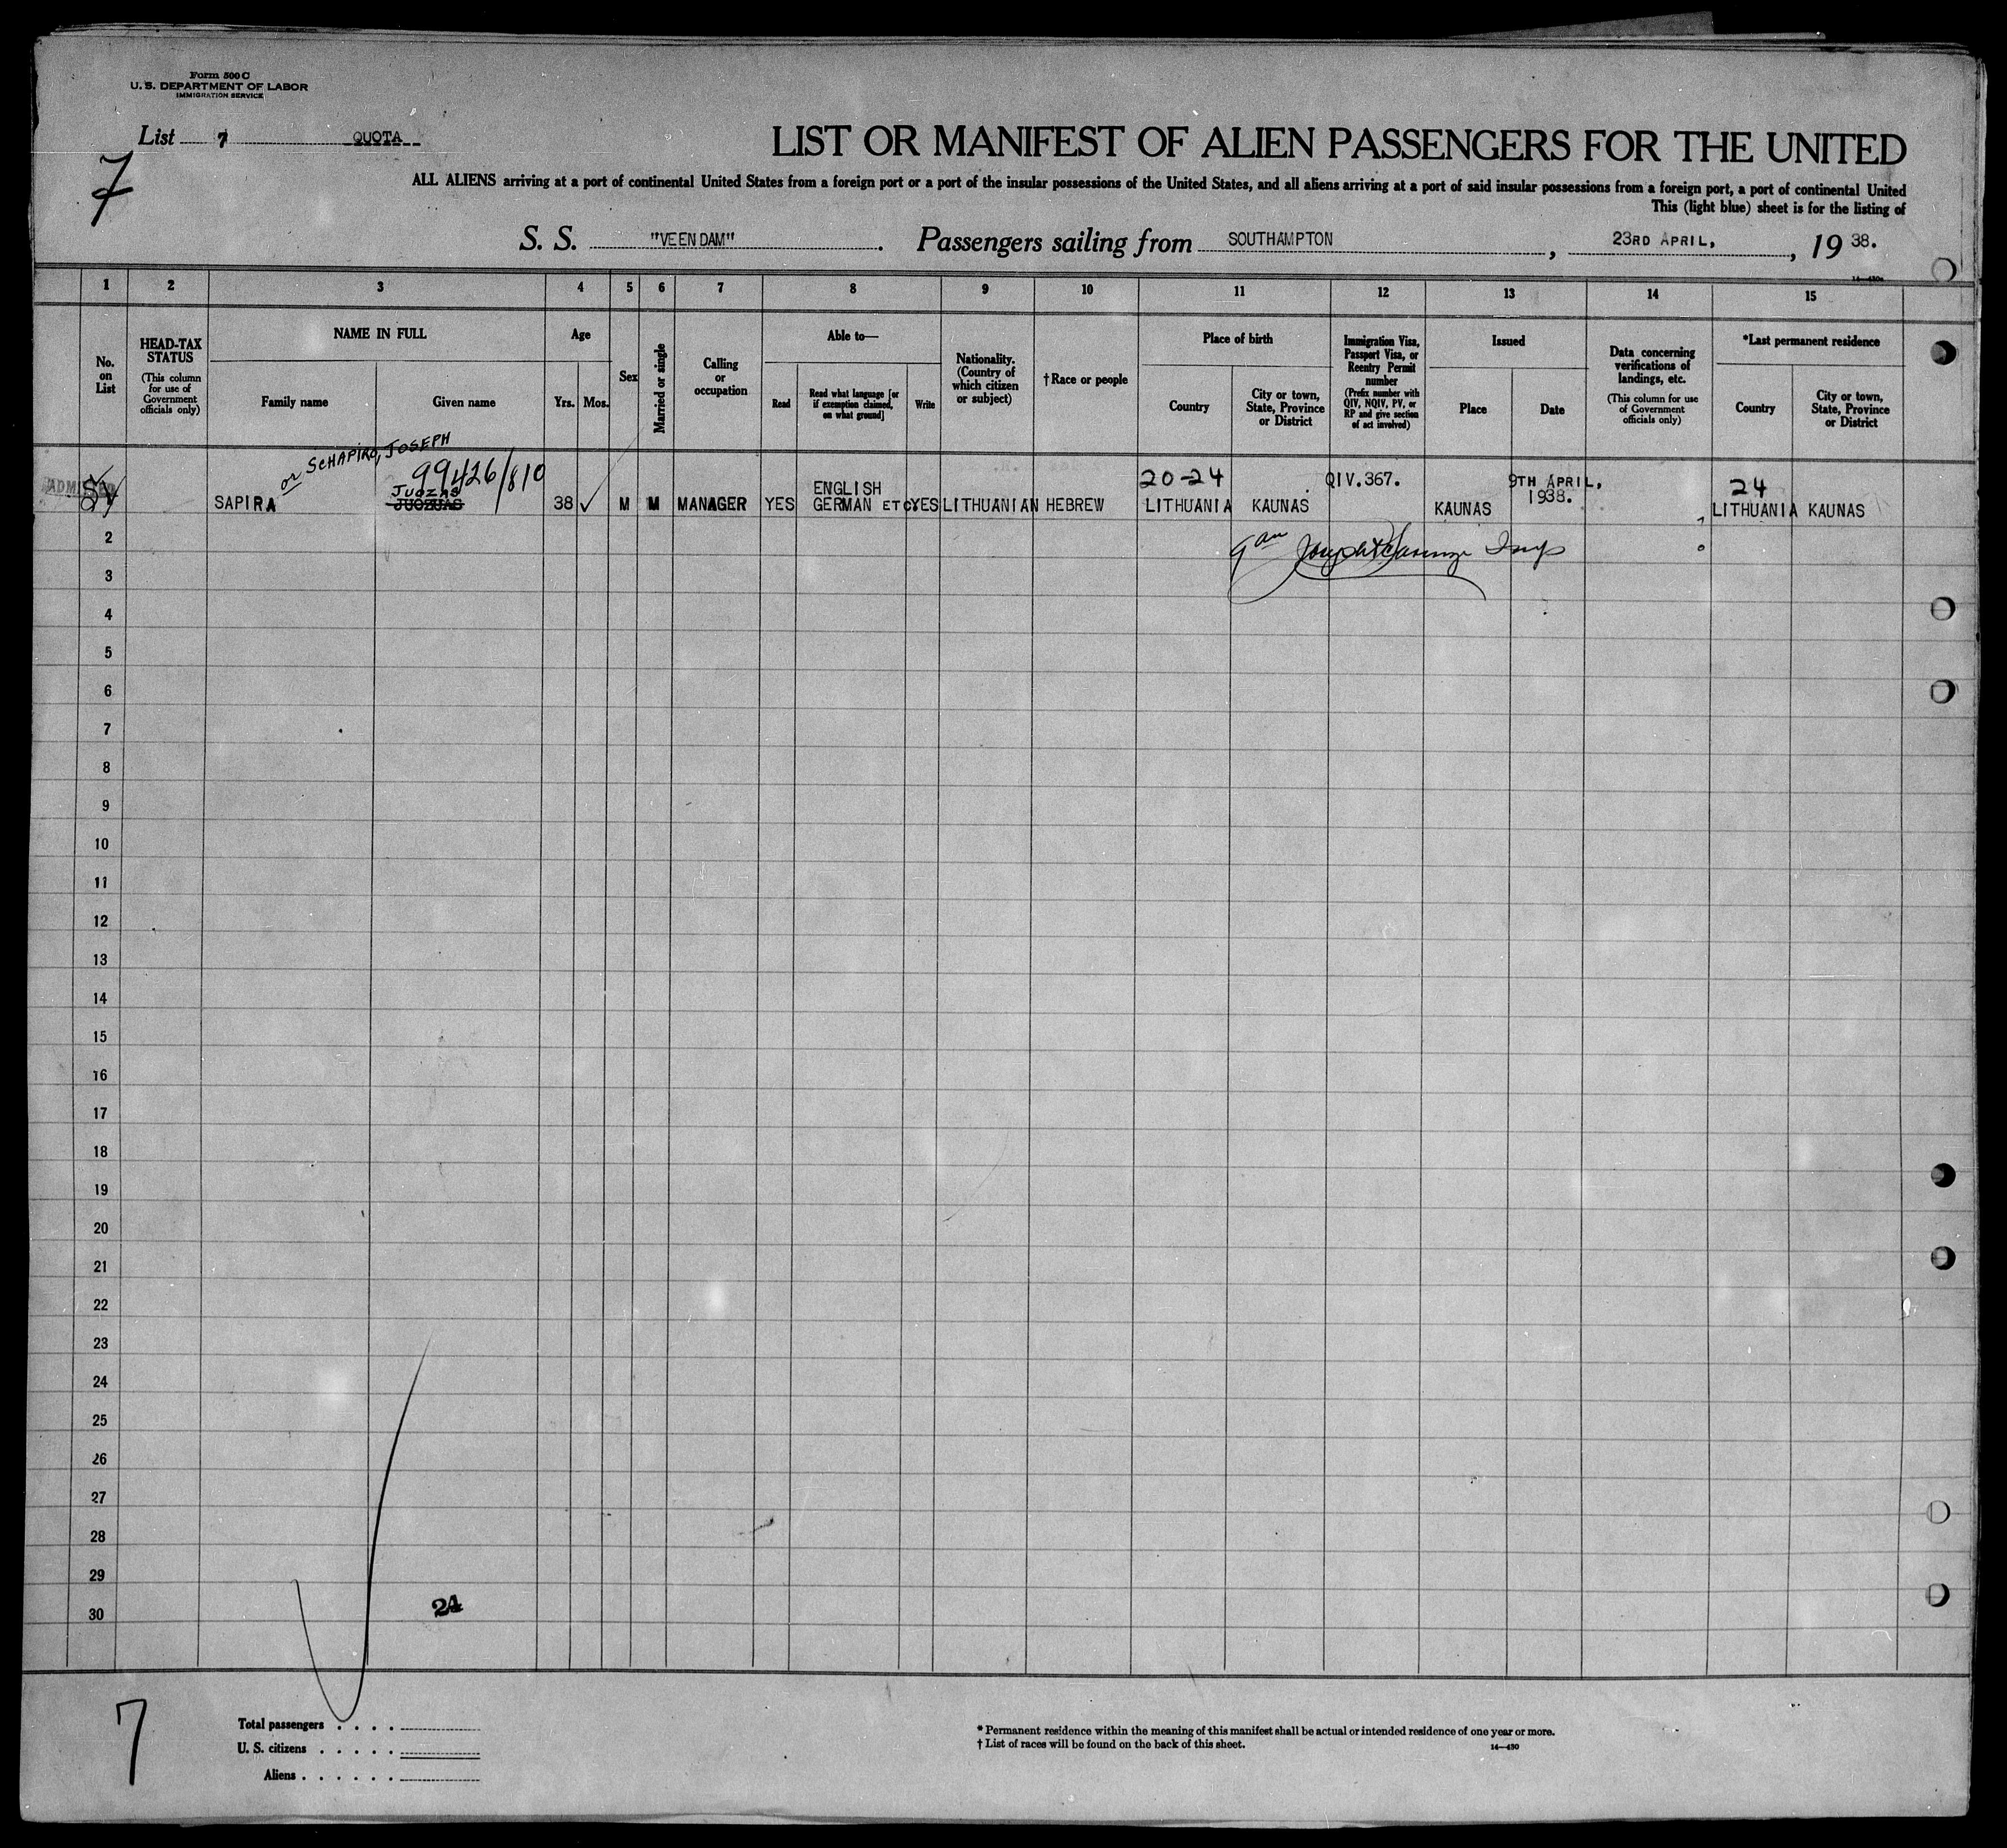 Form 500 C
U. S. DEPARTMENT OF LABOR
IMMIGRATION SERVICE
List 7 QUOTA
7
LIST OR MANIFEST OF ALIEN PASSENGERS FOR THE UNITED
ALL ALIENS arriving at a port of continental United States from a foreign port or a port of the insular possessions of the United States, and all aliens arriving at a port of said insular possessions from a foreign port, a port of continental United
This (light blue) sheet is for the listing of
S. S. "VEENDAM". Passengers sailing from SOUTHAMPTON, 23RD APRIL, 1938.
1 2 3 4 5 6 7 8 9 10 11 12 13 14 15
No. on List
HEAD-TAX STATUS
(This column for use of Government officials only)
NAME IN FULL
Family name
Given name
Age
Yrs. Mos.
Sex
Married or single
Calling or occupation
Able to—
Read
Read what language [or if exemption claimed, on what ground]
Write
Nationality. (Country of which citizen or subject)
† Race or people
Place of birth
Country
City or town, State, Province or District
Immigration Visa, Passport Visa, or Reentry Permit number
(Prefix number with QIV, NQIV, PV, or RP and give section of act involved)
Issued
Place
Date
Data concerning verifications of landings, etc.
(This column for use of Government officials only)
*Last permanent residence
Country
City or town, State, Province or District
or SCHAPIRO, JOSEPH
99426/810
ADMITTED
SAPIRA JUOZAS JUOZUAS 38 M M MANAGER YES ENGLISH GERMAN ETC YES LITHUANIAN HEBREW 20-24 LITHUANIA KAUNAS QIV.367. KAUNAS 9TH APRIL, 1938. 24 LITHUANIA KAUNAS
2
3
4
5
6
7
8
9
10
11
12
13
14
15
16
17
18
19
20
21
22
23
24
25
26
27
28
29
30
24
7
Total passengers . . . .
U. S. citizens . . . . .
Aliens . . . . . .
* Permanent residence within the meaning of this manifest shall be actual or intended residence of one year or more.
† List of races will be found on the back of this sheet.
14—430